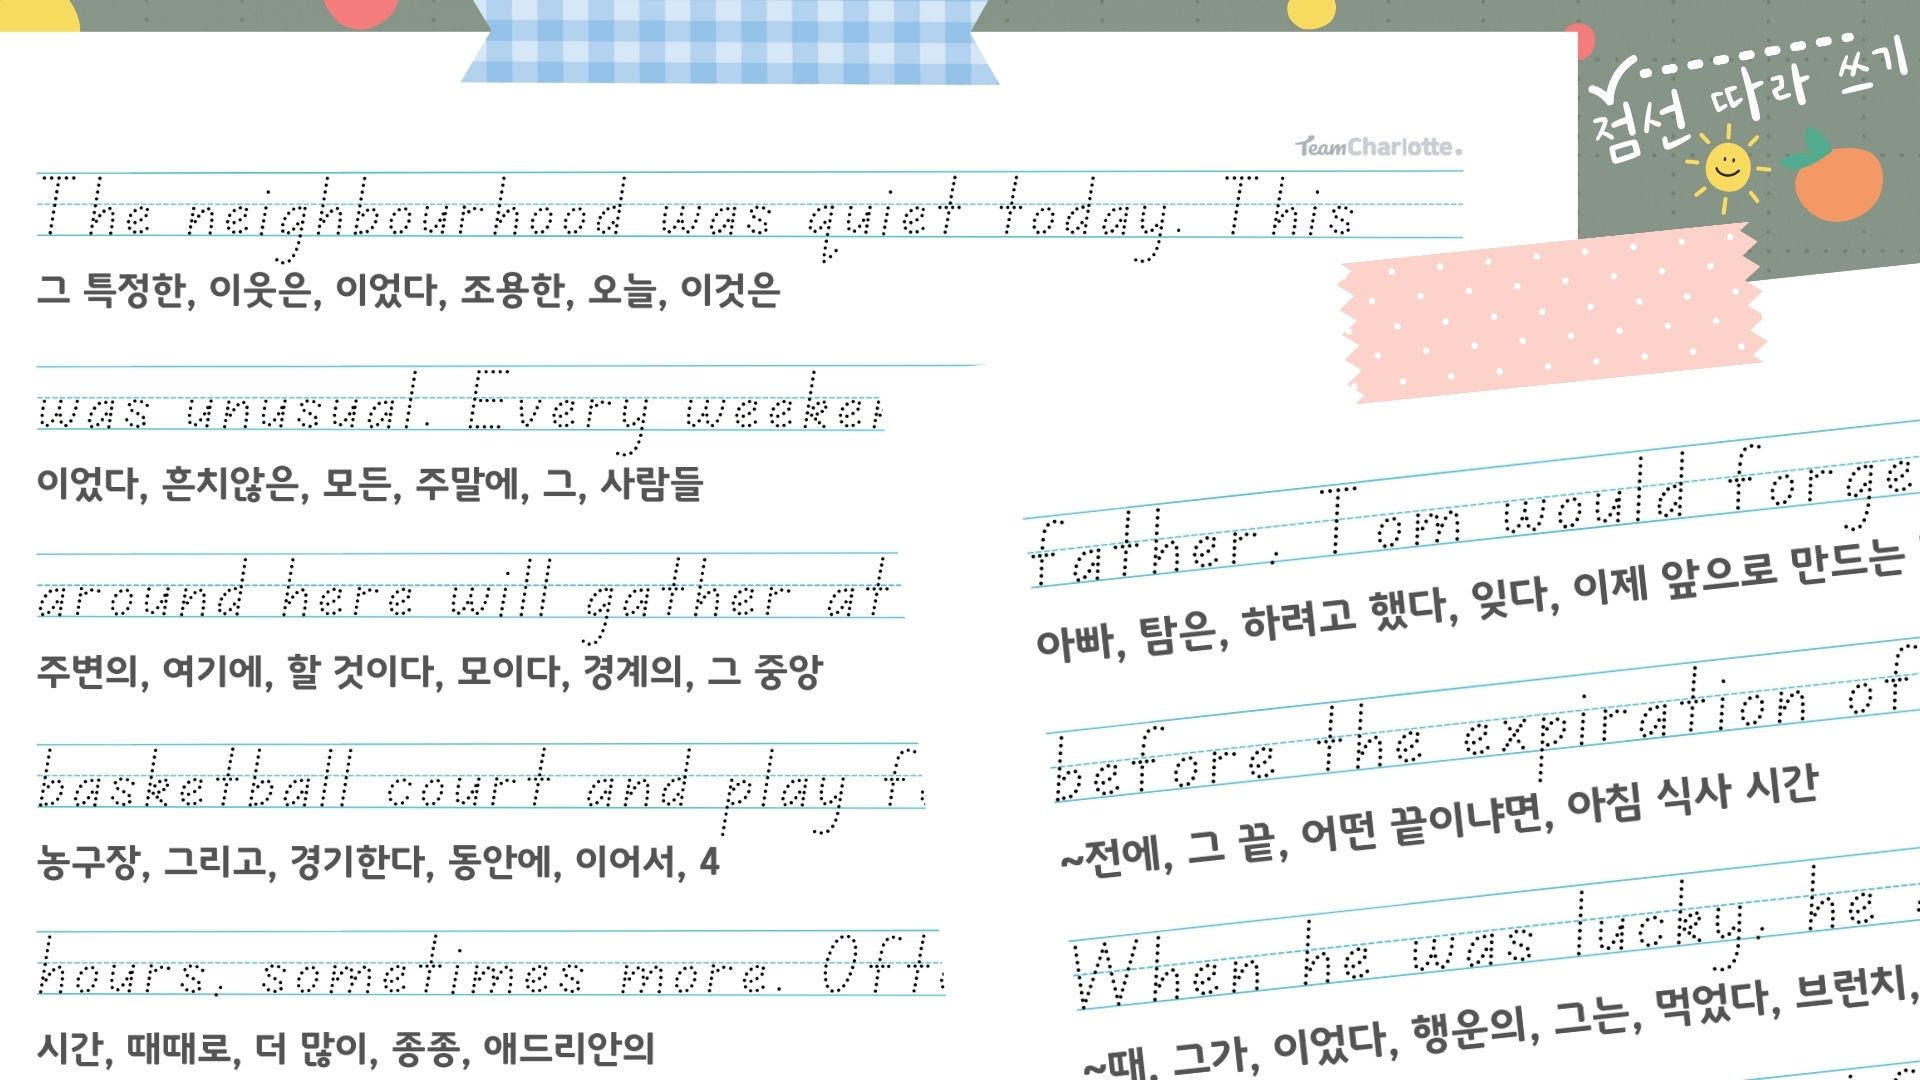 점선 따라 쓰기
TeamCharlotte.
The neighbourhood was quiet today. This
그 특정한, 이웃은, 이었다, 조용한, 오늘, 이것은
was unusual. Every
이었다, 흔치않은, 모든, 주말에, 그, 사람들
around here will gather at
주변의, 여기에, 할 것이다, 모이다, 경계의, 그 중앙
basketball court and play
농구장, 그리고, 경기한다, 동안에, 이어서, 4
hours, sometimes more.
시간, 때때로, 더 많이, 종종, 애드리안의
father. Tom would
아빠, 탐은, 하려고 했다, 잊다, 이제 앞으로 만드는
before the expiration of
~전에, 그 끝, 어떤 끝이냐면, 아침 식사 시간
When he was lucky, he
~때, 그가, 이었다, 행운의, 그는, 먹었다, 브런치,